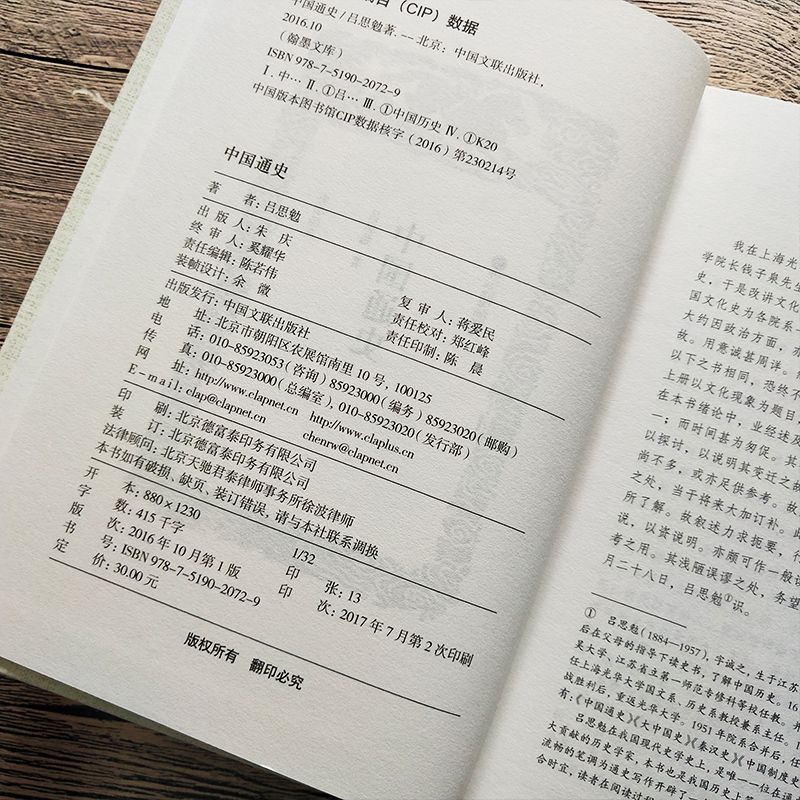 （CIP）数据
中国通史/吕思勉著. — 北京：中国文联出版社，
2016.10
（翰墨文库）
ISBN 978-7-5190-2072-9
Ⅰ. 中… Ⅱ. ①吕… Ⅲ. ①中国历史 Ⅳ. ①K20
中国版本图书馆CIP数据核字（2016）第230214号
中国通史
著 者：吕思勉
出 版 人：朱 庆
终 审 人：奚耀华 复 审 人：蒋爱民
责任编辑：陈若伟 责任校对：郑红峰
装帧设计：余 微 责任印制：陈 晨
出版发行：中国文联出版社
地 址：北京市朝阳区农展馆南里 10 号，100125
电 话：010-85923053（咨询）85923000（编务）85923020（邮购）
传 真：010-85923000（总编室），010-85923020（发行部）
网 址：http://www.clapnet.cn http://www.claplus.cn
E-mail：clap@clapnet.cn chenrw@clapnet.cn
印 刷：北京德富泰印务有限公司
装 订：北京德富泰印务有限公司
法律顾问：北京天驰君泰律师事务所徐波律师
本书如有破损、缺页、装订错误，请与本社联系调换
开 本：880×1230 1/32
字 数：415千字 印 张：13
版 次：2016 年 10 月第 1 版 印 次：2017 年 7 月第 2 次印刷
书 号：ISBN 978-7-5190-2072-9
定 价：30.00 元
版权所有 翻印必究
我在上海光
学院长钱子泉先生
史，于是改讲文化
国文化史为各院系
大约因政治方面，亦
故。用意诚甚周详。
以下之书相同，恐终不
上册以文化现象为题目，
在本书绪论中，业经述及
一；而时间甚为匆促。其
以探讨，以说明其变迁之故
尚不多，或亦足供参考。故
之处，当于将来大加订补。此
所了解。故叙述力求扼要，行
说，以资说明。亦颇可作一般读
考之用。其浅陋误谬之处，务望
月二十八日，吕思勉①识。
① 吕思勉（1884—1957），字诚之，生于江苏
后在父母的指导下读史书，了解中国历史。16
吴大学、江苏省立第一师范专修科等校任教。
任上海光华大学国文系、历史系教授兼系主任。
战胜利后，重返光华大学。1951 年院系合并后，任
有：《中国通史》《大中国史》《秦汉史》《中国制度史
吕思勉在我国现代史学史上，是唯一一位在通
大贡献的历史学家，本书也是我国历史上
流畅的笔调为通史写作开辟了一
合时宜，读者在阅读过程